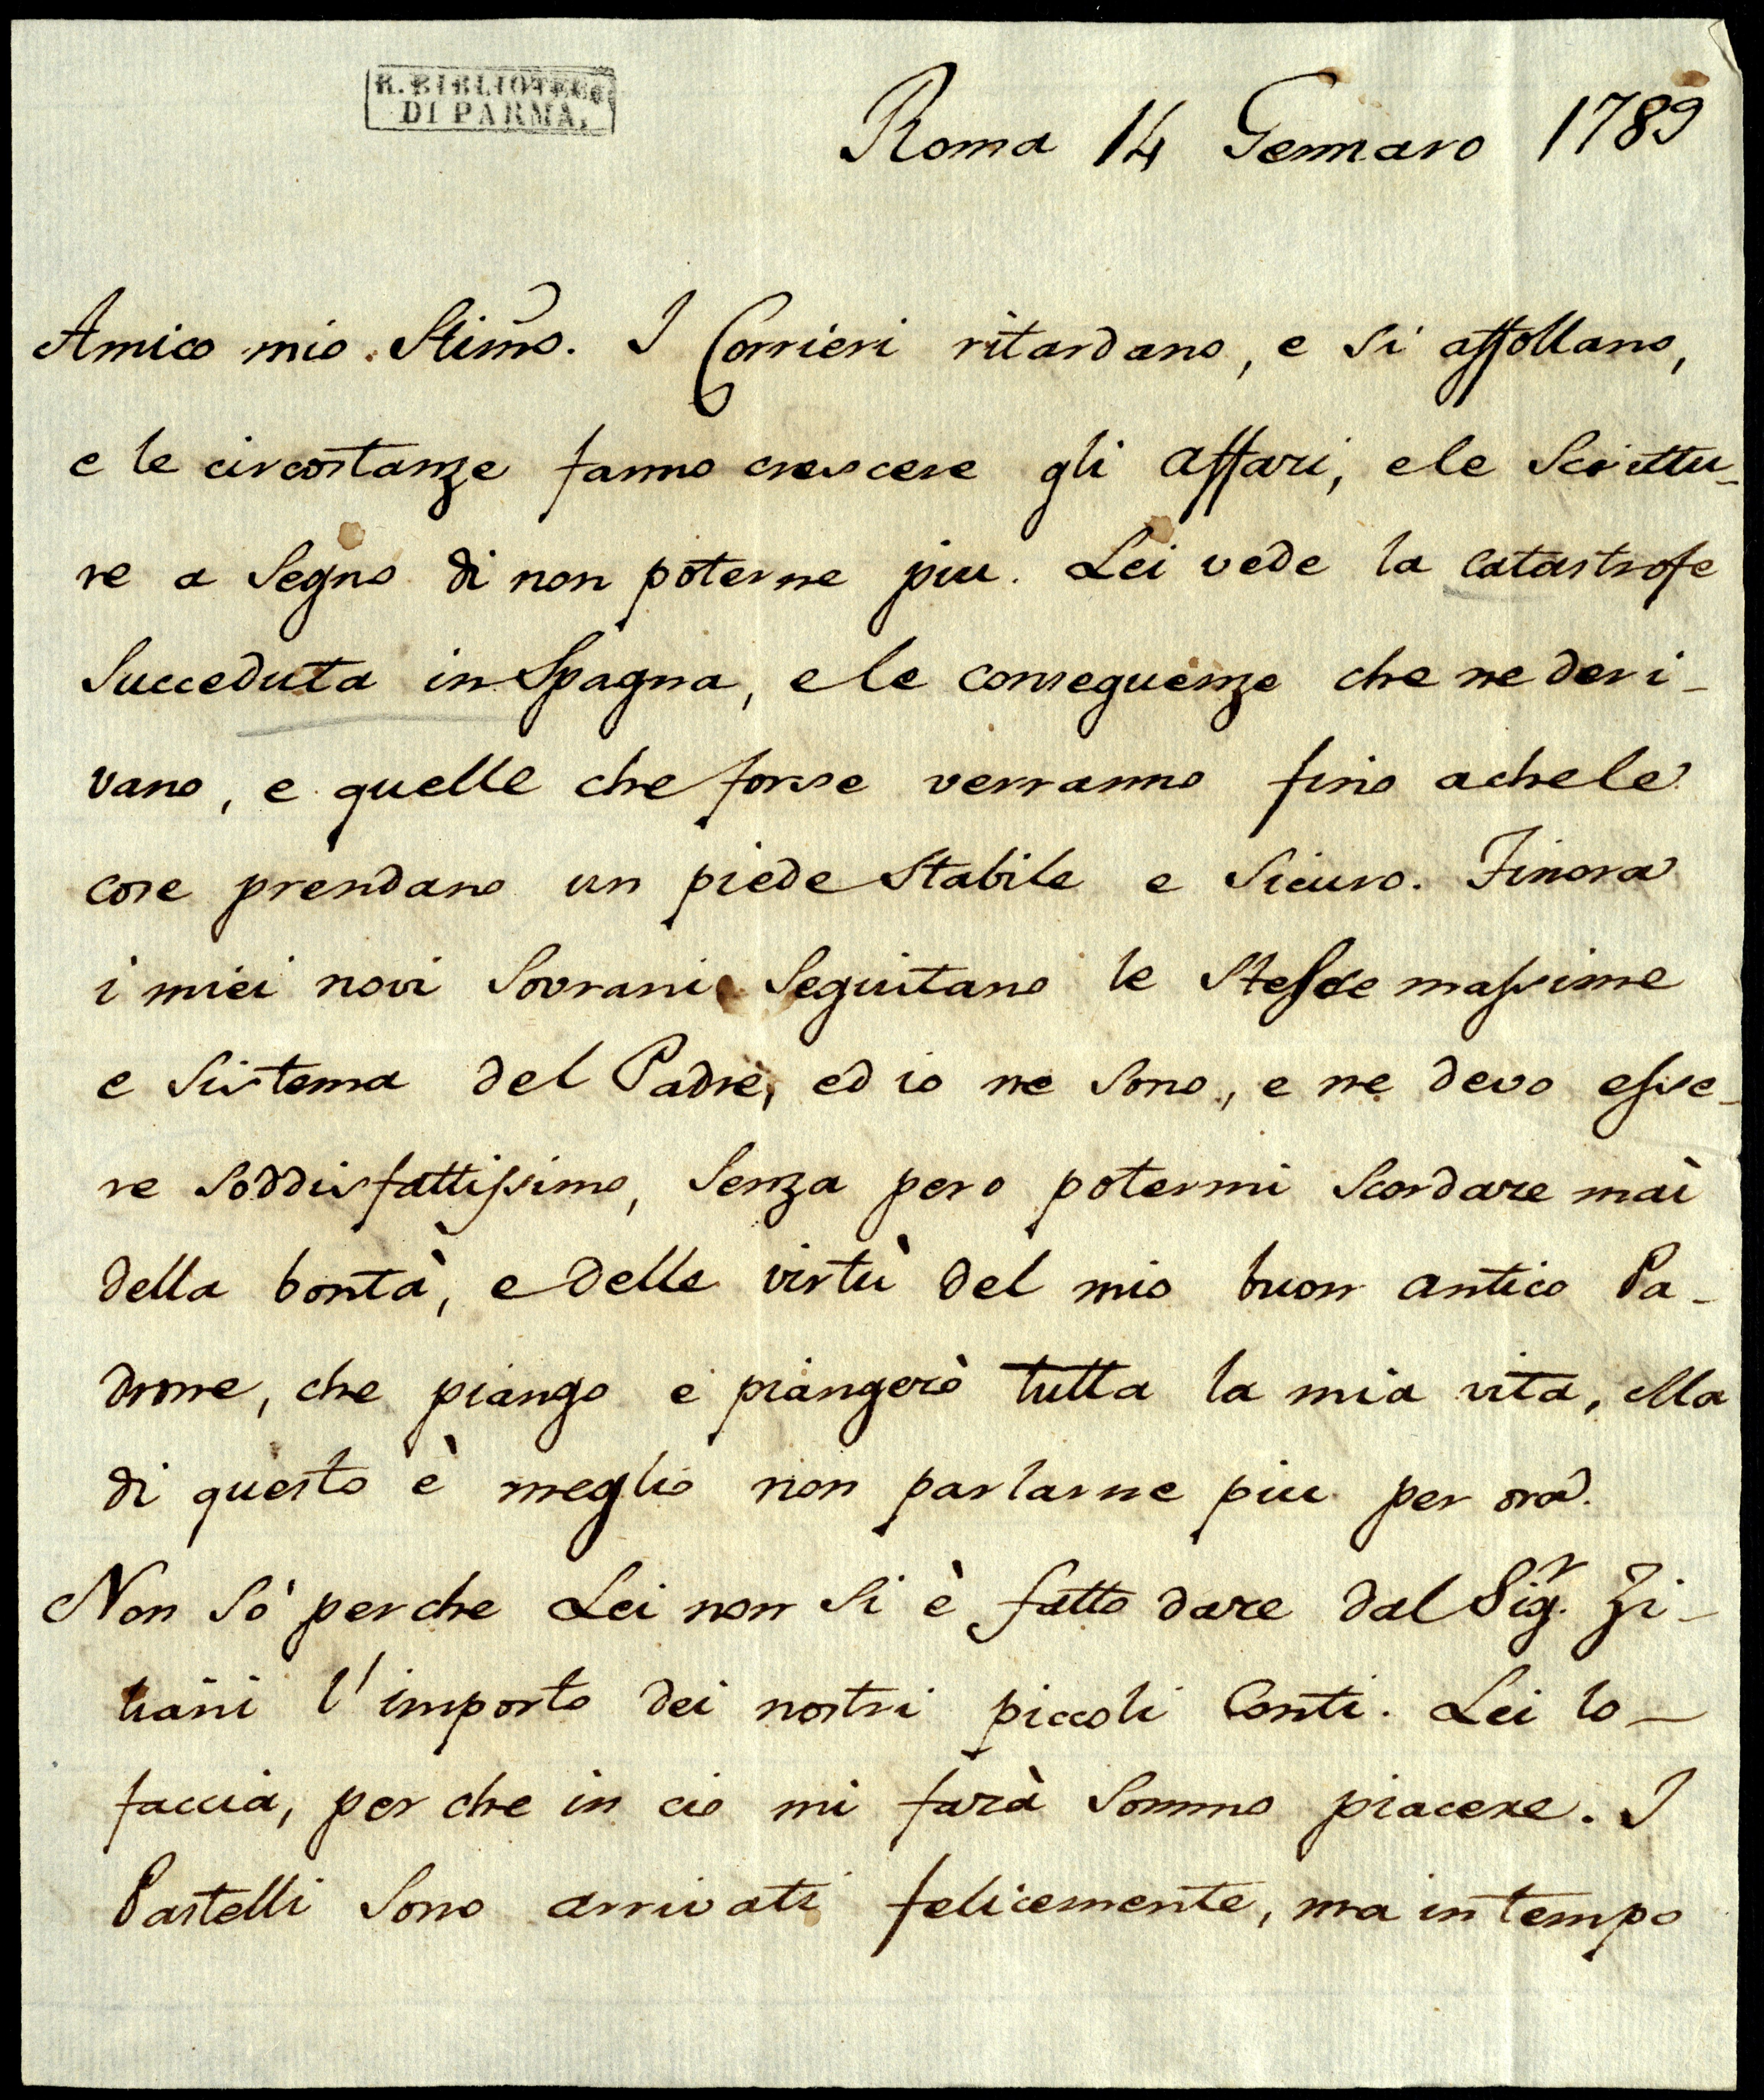 R. BIBLIOTECA
DI PARMA.
Roma 14 Gennaro 1789
Amico mio Stimo. I Corrieri ritardano, e si affollano,
e le circostanze fanno crescere gli affari, e le Scrittu-
re a Segno di non poterne piu. Lei vede la catastrofe
Succeduta in Spagna, e le conseguenze che ne deri-
vano, e quelle che forse verranno fino a che le
cose prendano un piede Stabile e Sicuro. Finora
i miei novi Sovrani Seguitano le Stesse massime
e Sistema del Padre, ed io ne Sono, e ne devo esse-
re Soddisfattissimo, Senza pero potermi Scordare mai
della bontà, e delle virtù del mio buon antico Pa-
drone, che piango e piangerò tutta la mia vita, Ma
di questo è meglio non parlarne piu per ora.
Non Sò perche Lei non Si è fatto dare dal Sigr. Zi-
liani l'importo dei nostri piccoli Conti. Lei lo
faccia, perche in cio mi farà Sommo piacere. I
Pastelli Sono arrivati felicemente, ma in tempo